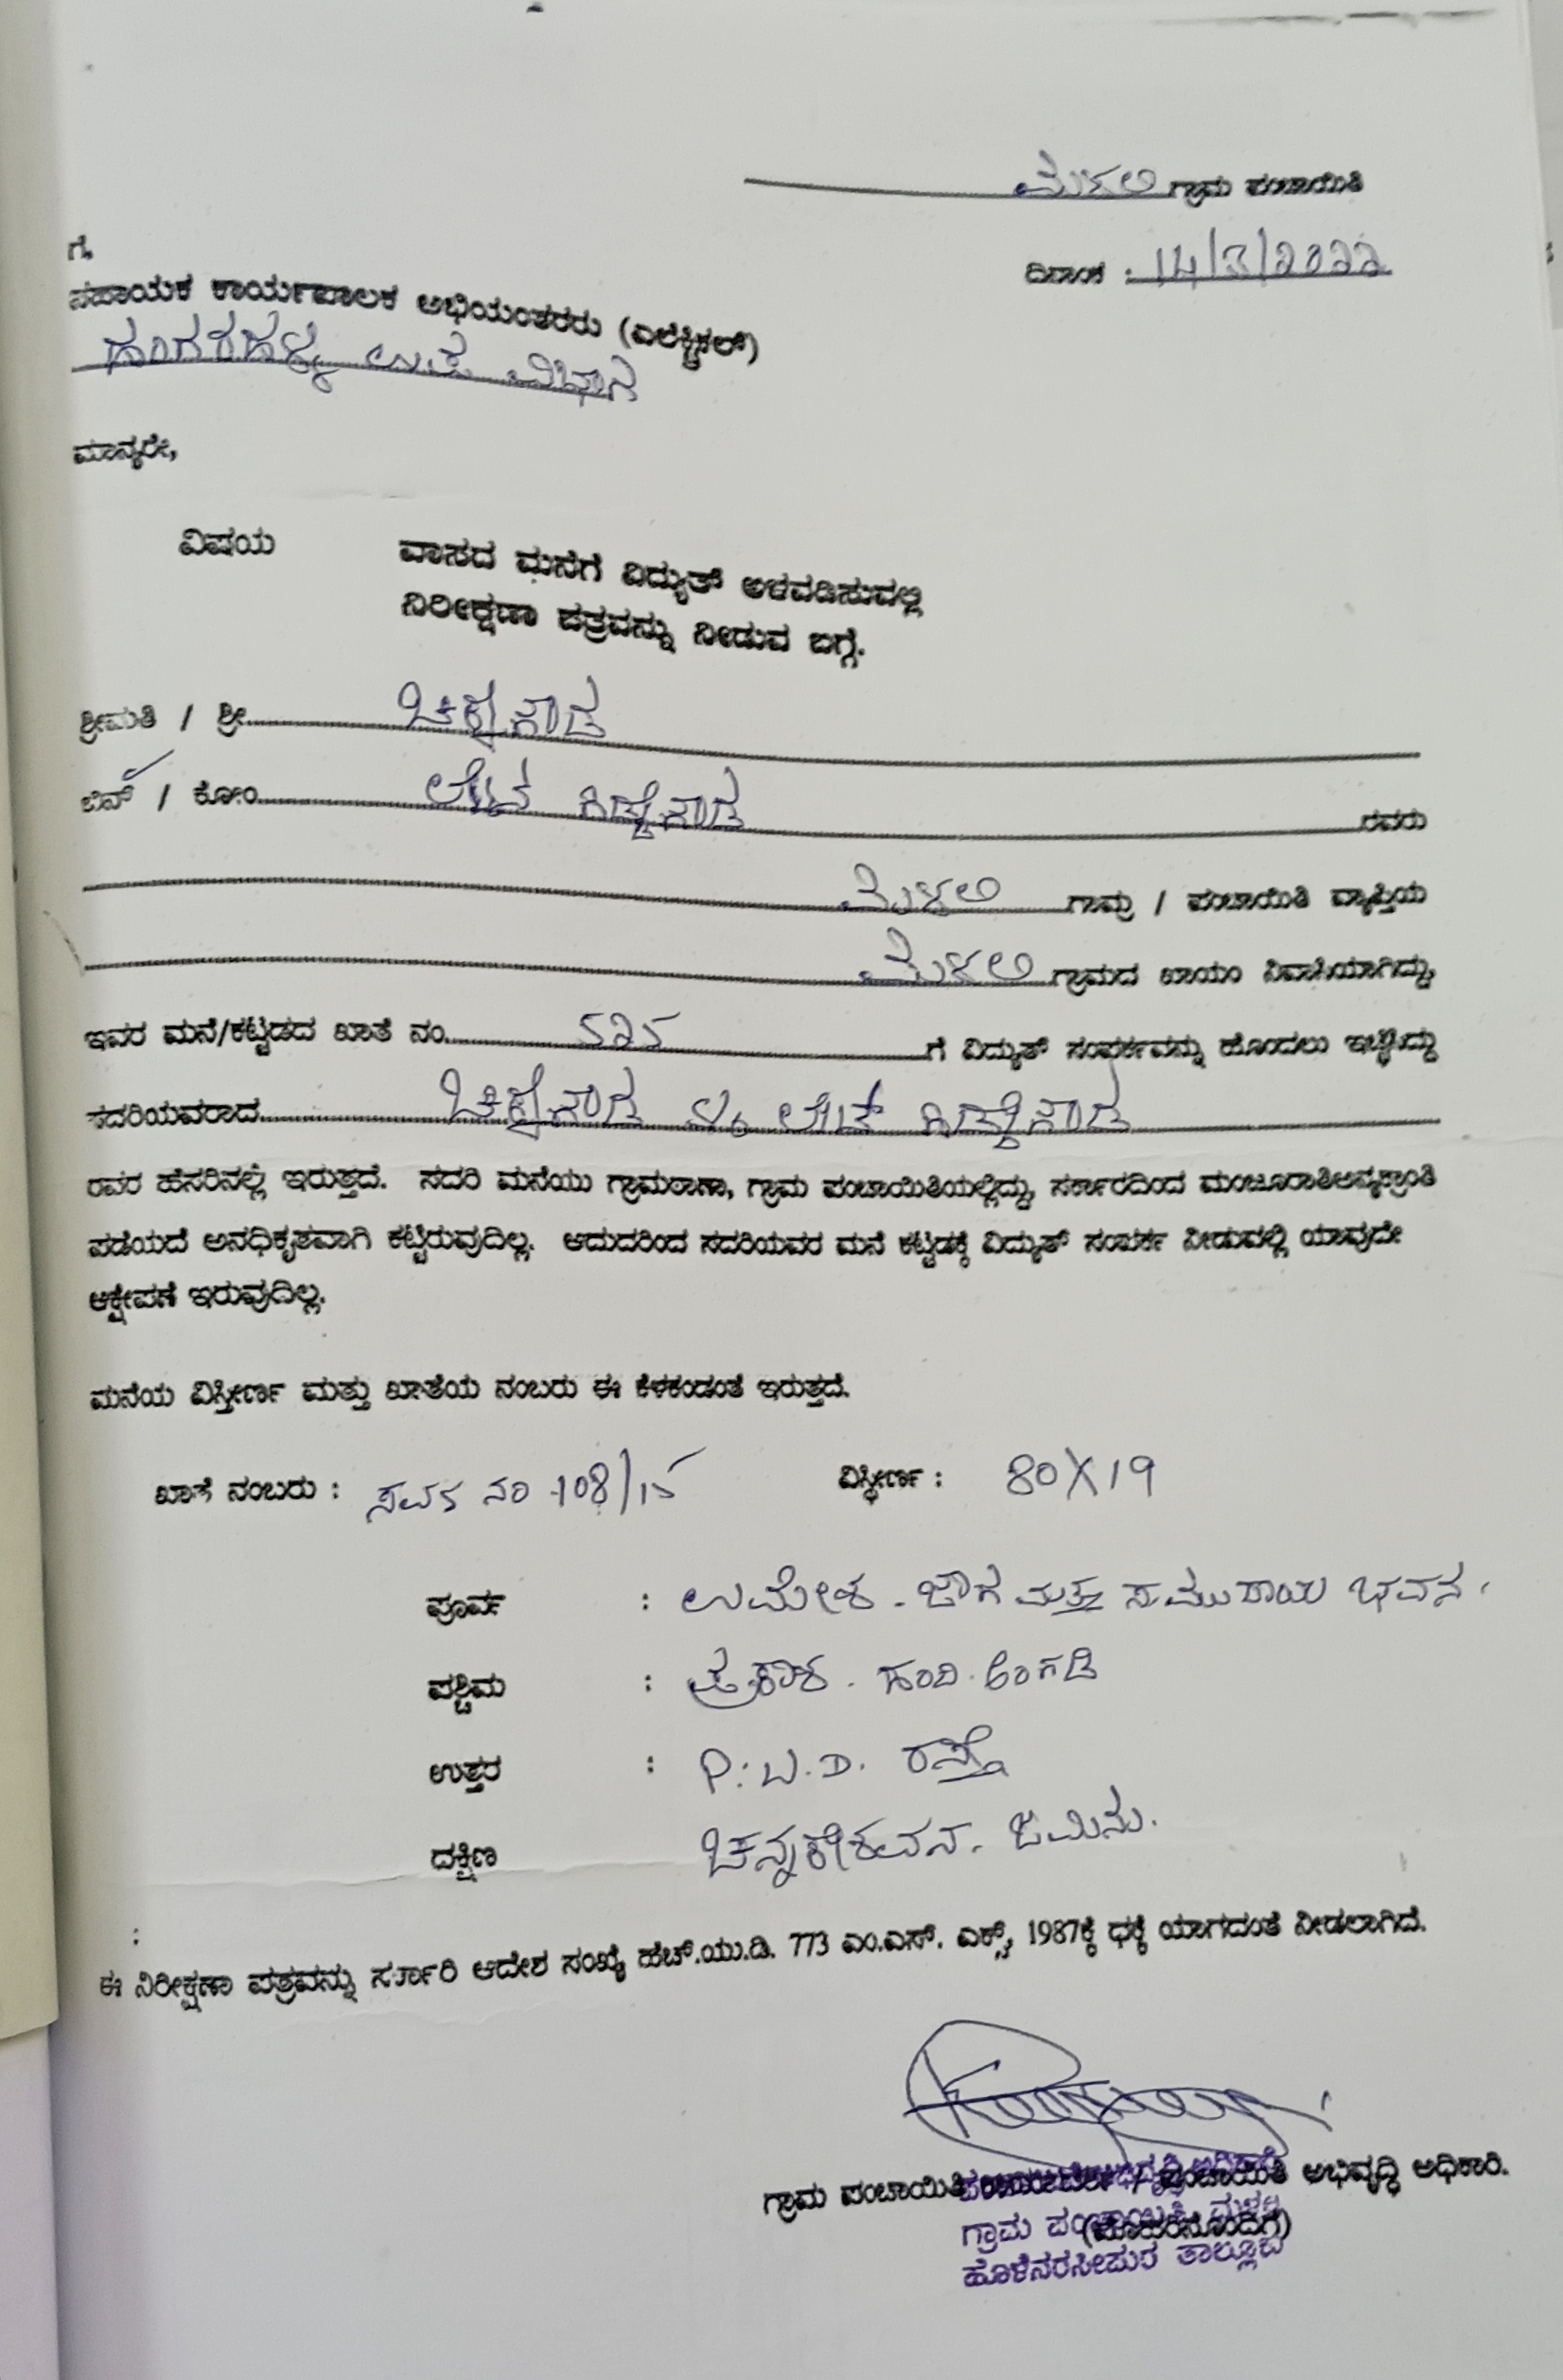 ಮಳಲಿ ಗ್ರಾಮ ಪಂಚಾಯಿತಿ
ದಿನಾಂಕ : 14/3/2022
ಗೆ,
ಸಹಾಯಕ ಕಾರ್ಯಪಾಲಕ ಅಭಿಯಂತರರು (ಎಲೆಕ್ಟ್ರಿಕಲ್)
ಹಂಗರಹಳ್ಳಿ ಉಪ ವಿಭಾಗ
ಮಾನ್ಯರೇ,
ವಿಷಯ ವಾಸದ ಮನೆಗೆ ವಿದ್ಯುತ್ ಅಳವಡಿಸುವಲ್ಲಿ
ನಿರೀಕ್ಷಣಾ ಪತ್ರವನ್ನು ನೀಡುವ ಬಗ್ಗೆ.
ಶ್ರೀಮತಿ / ಶ್ರೀ
ಬಿನ್ / ಕೋಂ ಲೇಟ್ ರವರು
ಮಳಲಿ ಗ್ರಾಮ / ಪಂಚಾಯಿತಿ ವ್ಯಾಪ್ತಿಯ
ಮಳಲಿ ಗ್ರಾಮದ ಖಾಯಂ ನಿವಾಸಿಯಾಗಿದ್ದು,
ಇವರ ಮನೆ/ಕಟ್ಟಡದ ಖಾತೆ ನಂ. 525 ಗೆ ವಿದ್ಯುತ್ ಸಂಪರ್ಕವನ್ನು ಹೊಂದಲು ಇಚ್ಛಿಸಿದ್ದು
ಸದರಿಯವರಾದ ಲೇಟ್
ರವರ ಹೆಸರಿನಲ್ಲಿ ಇರುತ್ತದೆ. ಸದರಿ ಮನೆಯು ಗ್ರಾಮಠಾಣಾ, ಗ್ರಾಮ ಪಂಚಾಯಿತಿಯಲ್ಲಿದ್ದು, ಸರ್ಕಾರದಿಂದ ಮಂಜೂರಾತಿ
ಪಡೆಯದೆ ಅನಧಿಕೃತವಾಗಿ ಕಟ್ಟಿರುವುದಿಲ್ಲ. ಆದುದರಿಂದ ಸದರಿಯವರ ಮನೆ ಕಟ್ಟಡಕ್ಕೆ ವಿದ್ಯುತ್ ಸಂಪರ್ಕ ನೀಡುವಲ್ಲಿ ಯಾವುದೇ
ಆಕ್ಷೇಪಣೆ ಇರುವುದಿಲ್ಲ.
ಮನೆಯ ವಿಸ್ತೀರ್ಣ ಮತ್ತು ಖಾತೆಯ ನಂಬರು ಈ ಕೆಳಕಂಡಂತೆ ಇರುತ್ತದೆ.
ಖಾತೆ ನಂಬರು : ಸರ್ವೆ ನಂ 108/15 ವಿಸ್ತೀರ್ಣ : 80X19
ಪೂರ್ವ : ಉಮೇಶ - ಜಾಗ ಮತ್ತು ಸಮುದಾಯ ಭವನ.
ಪಶ್ಚಿಮ : ಪ್ರಕಾಶ - ಹಂದಿ ಅಂಗಡಿ
ಉತ್ತರ : P.W.D. ರಸ್ತೆ
ದಕ್ಷಿಣ ಚನ್ನಕೇಶವನ. ಜಮೀನು.
:
ಈ ನಿರೀಕ್ಷಣಾ ಪತ್ರವನ್ನು ಸರ್ಕಾರಿ ಆದೇಶ ಸಂಖ್ಯೆ ಹೆಚ್.ಯು.ಡಿ. 773 ಎಂ.ಎಸ್. ಎಕ್ಸ್, 1987ಕ್ಕೆ ಧಕ್ಕೆ ಯಾಗದಂತೆ ನೀಡಲಾಗಿದೆ.
ಗ್ರಾಮ ಪಂಚಾಯಿತಿ / ಪಂಚಾಯಿತಿ ಅಭಿವೃದ್ಧಿ ಅಧಿಕಾರಿ.
(ಮೊಹರಿನೊಂದಿಗೆ)
ಗ್ರಾಮ ಪಂಚಾಯಿತಿ ಮಳಲಿ
ಹೊಳೆನರಸೀಪುರ ತಾಲ್ಲೂಕು